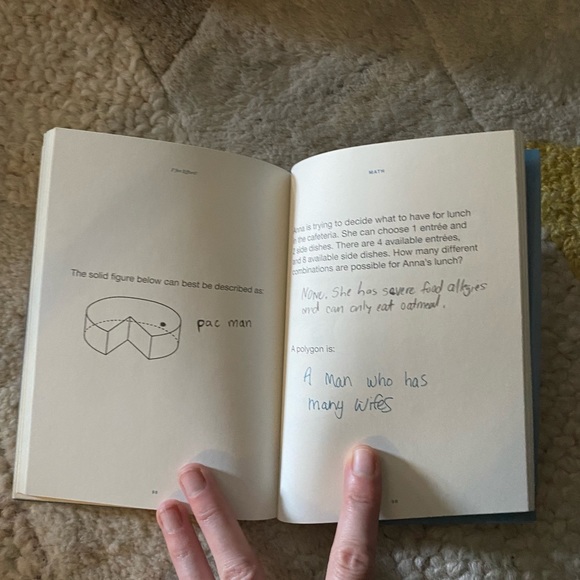 The solid figure below can best be described as:
pac man
MATH
Anna is trying to decide what to have for lunch
in the cafeteria. She can choose 1 entrée and
2 side dishes. There are 4 available entrées,
and 8 available side dishes. How many different
combinations are possible for Anna's lunch?
None. She has severe food allergies
and can only eat oatmeal.
A polygon is:
A man who has
many wifes